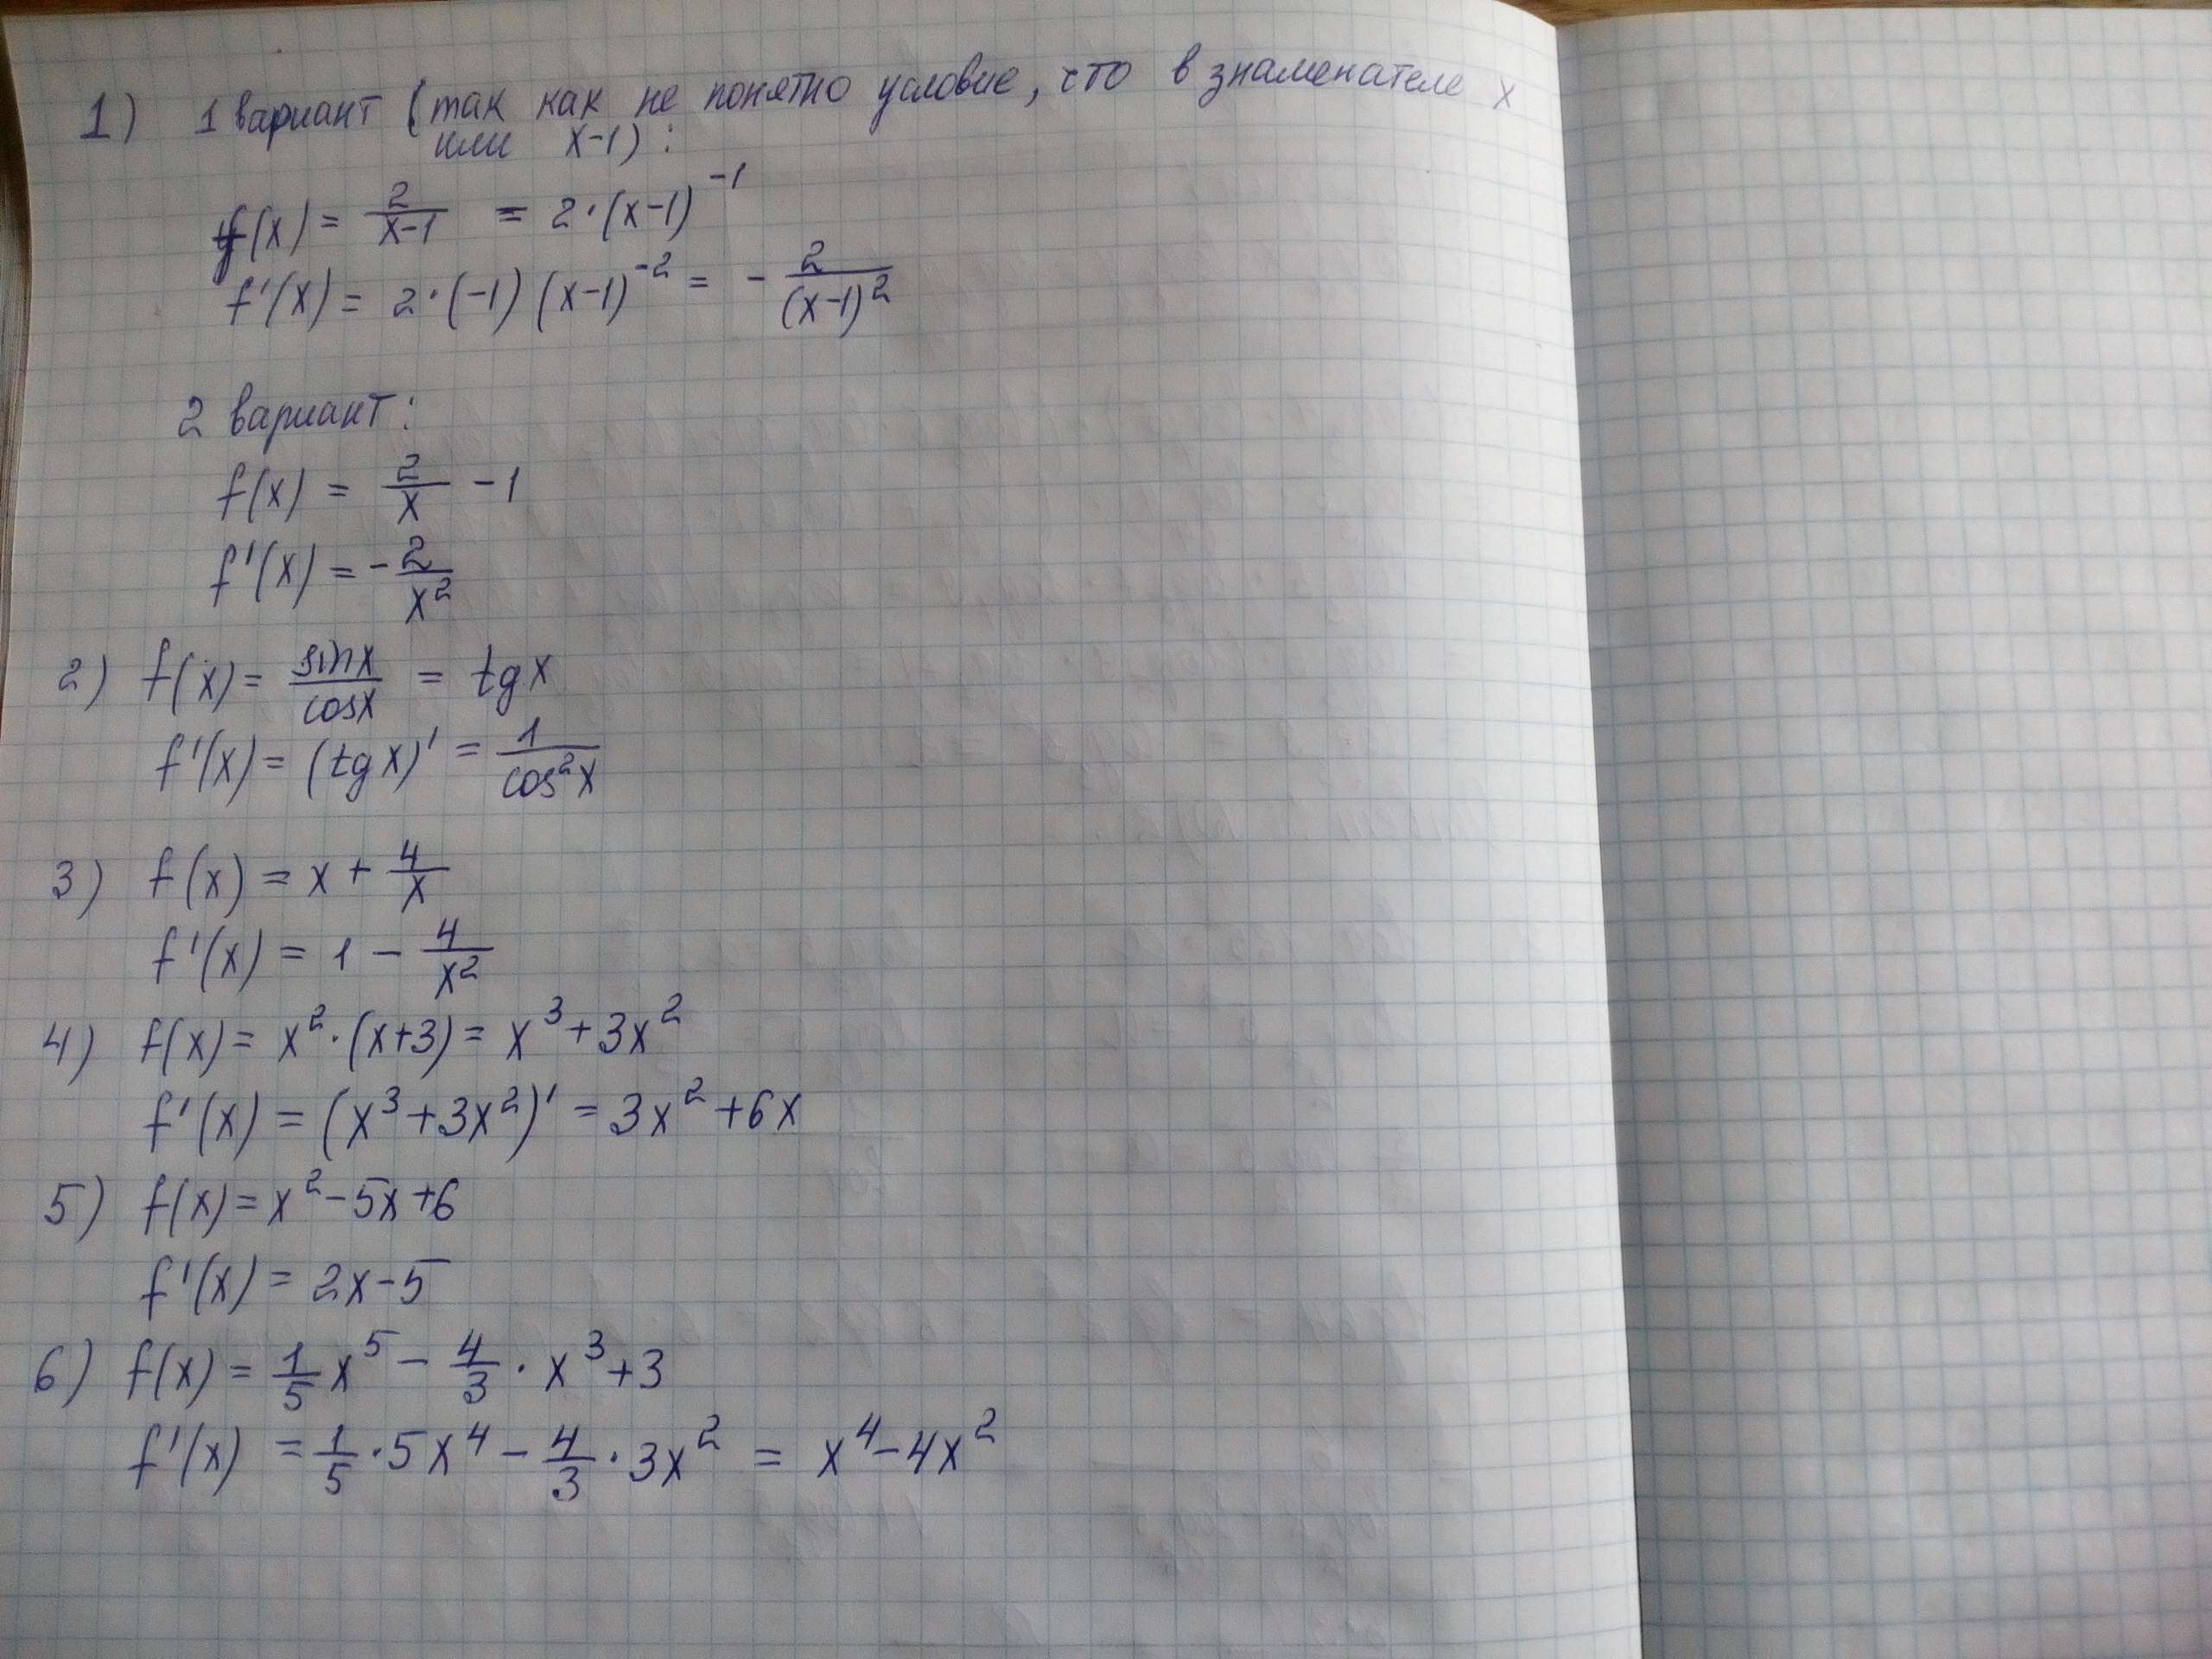 1) 1 вариант (так как не понятно условие, что в знаменателе x
или x-1):
f(x) = 2/(x-1) = 2·(x-1)^-1
f'(x) = 2·(-1)(x-1)^-2 = - 2/(x-1)^2
2 вариант:
f(x) = 2/x - 1
f'(x) = - 2/x^2
2) f(x) = sinx/cosx = tgx
f'(x) = (tgx)' = 1/cos^2x
3) f(x) = x + 4/x
f'(x) = 1 - 4/x^2
4) f(x) = x^2·(x+3) = x^3+3x^2
f'(x) = (x^3+3x^2)' = 3x^2+6x
5) f(x) = x^2-5x+6
f'(x) = 2x-5
6) f(x) = 1/5 x^5 - 4/3·x^3+3
f'(x) = 1/5·5x^4 - 4/3·3x^2 = x^4-4x^2